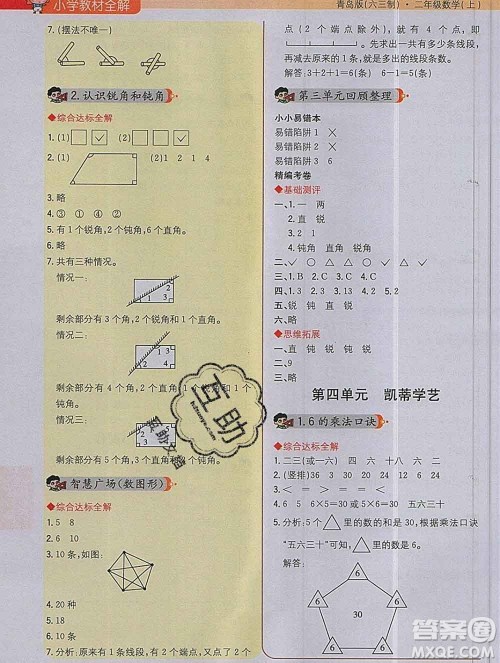 小学教材全解
7. (摆法不唯一)
2. 认识锐角和钝角
◆综合达标全解
1. (1)□□☑ (2)□☑□
2. (1) (2) 1 2 1 4
3. 略
4. ③ ① ④ ②
5. 有1个锐角,2个钝角,6个直角。
6. 略
7. 共有三种情况。
情况一:
2
1 3
剩余部分有3个角,2个钝角和1个直角。
情况二:
1 3
2 4
剩余部分有4个角,2个直角,1个锐角和1个
钝角。
情况三:
剩余部分有5个角,
智慧广场(数图形)
◆综合达标全解
1. 5 8
2. 6 10
3. 10条,如图:
4. 20种
5. 18
6. 10条
7. 分析:原来有1条线段,有2个端点,又点了2个
青岛版(六三制)·二年级数学(上)
点(2个端点除外),就有4个点。
先求出一共有多少条线段,
再减去原来的1条,就是多出的线段条数。
解答:3+2+1=6(条) 6-1=5(条)
第三单元回顾整理
小小易错本
易错陷阱1 ×
易错陷阱2 ×
易错陷阱3 6
精编考卷
◆基础测评
一、1. 一 两
2. 直 锐
3. 2
4. 直 锐 钝
二、✓ ○ △ △ ✓ ○ ✓ △ ○
三、1. B 2. C 3. C 4. C
四、1. 3 2. 3 3. 9 4. 5
五、锐 钝 直 锐
六、略
◆思维拓展
一、直 钝 锐 钝 锐 直
二、9
三、略
第四单元 凯蒂学艺
1. 6的乘法口诀
◆综合达标全解
1. 二三(或一六) 四 六 十八 一 六 六
2. (竖排) 36 18 24 6 30 12
3. < = < = > <
4. 6 5 6×5=30 6 5×6=30 五六三十
5. 分析:5个△里的数的和是30,根据乘法口诀
“五六三十”可知,△里的数是6。
解答:
6
6 30 6
6 6
互助
答案圈
MXQE.COM